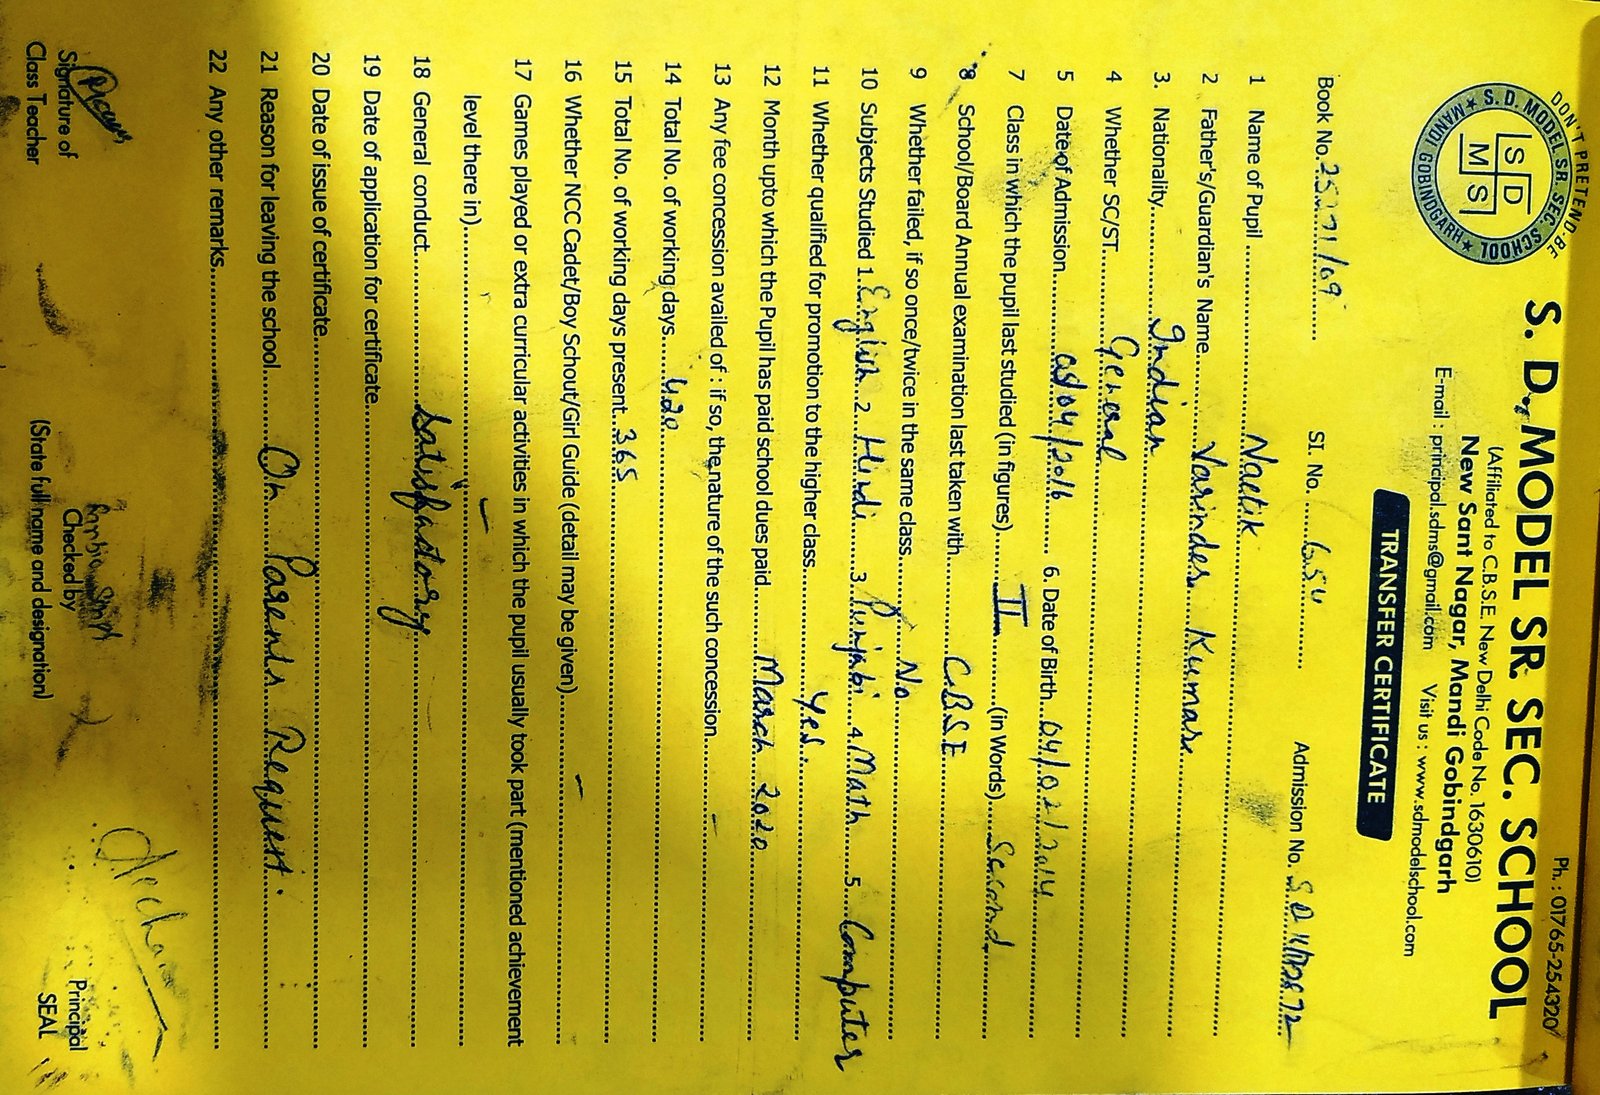 DON'T PRETEND-BE
S. D. MODEL SR. SEC. SCHOOL
MANDI GOBINDGARH
S D
M S
Ph. : 01765-254320
S. D. MODEL SR. SEC. SCHOOL
(Affiliated to C.B.S.E. New Delhi Code No. 1630610)
New Sant Nagar, Mandi Gobindgarh
E-mail : principal.sdms@gmail.com Visit us : www.sdmodelschool.com
TRANSFER CERTIFICATE
Book No. Sl. No. 654 Admission No.
1 Name of Pupil Naitik
2 Father's/Guardian's Name Varinder Kumar
3. Nationality Indian
4 Whether SC/ST General
5 Date of Admission 05/04/2016 6. Date of Birth 04/02/2014
7 Class in which the pupil last studied (in figures) II (in Words) Second
8 School/Board Annual examination last taken with C.B.S.E
9 Whether failed, if so once/twice in the same class No
10 Subjects Studied 1. English 2. Hindi 3. Punjabi 4. Math 5. Computer
11 Whether qualified for promotion to the higher class Yes.
12 Month upto which the Pupil has paid school dues paid March 2020
13 Any fee concession availed of : if so, the nature of the such concession -
14 Total No. of working days 420
15 Total No. of working days present 365
16 Whether NCC Cadet/Boy Schout/Girl Guide (detail may be given) -
17 Games played or extra curricular activities in which the pupil usually took part (mentioned achievement
level there in) -
18 General conduct satisfactory
19 Date of application for certificate
20 Date of issue of certificate
21 Reason for leaving the school On Parents Request.
22 Any other remarks
Signature of
Class Teacher
Checked by
(State full name and designation)
Principal
SEAL